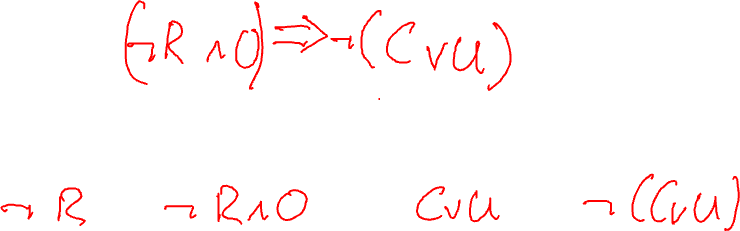 (¬R ∧ O) ⇒ ¬(C ∨ U)
¬R ¬R ∧ O C ∨ U ¬(C ∨ U)